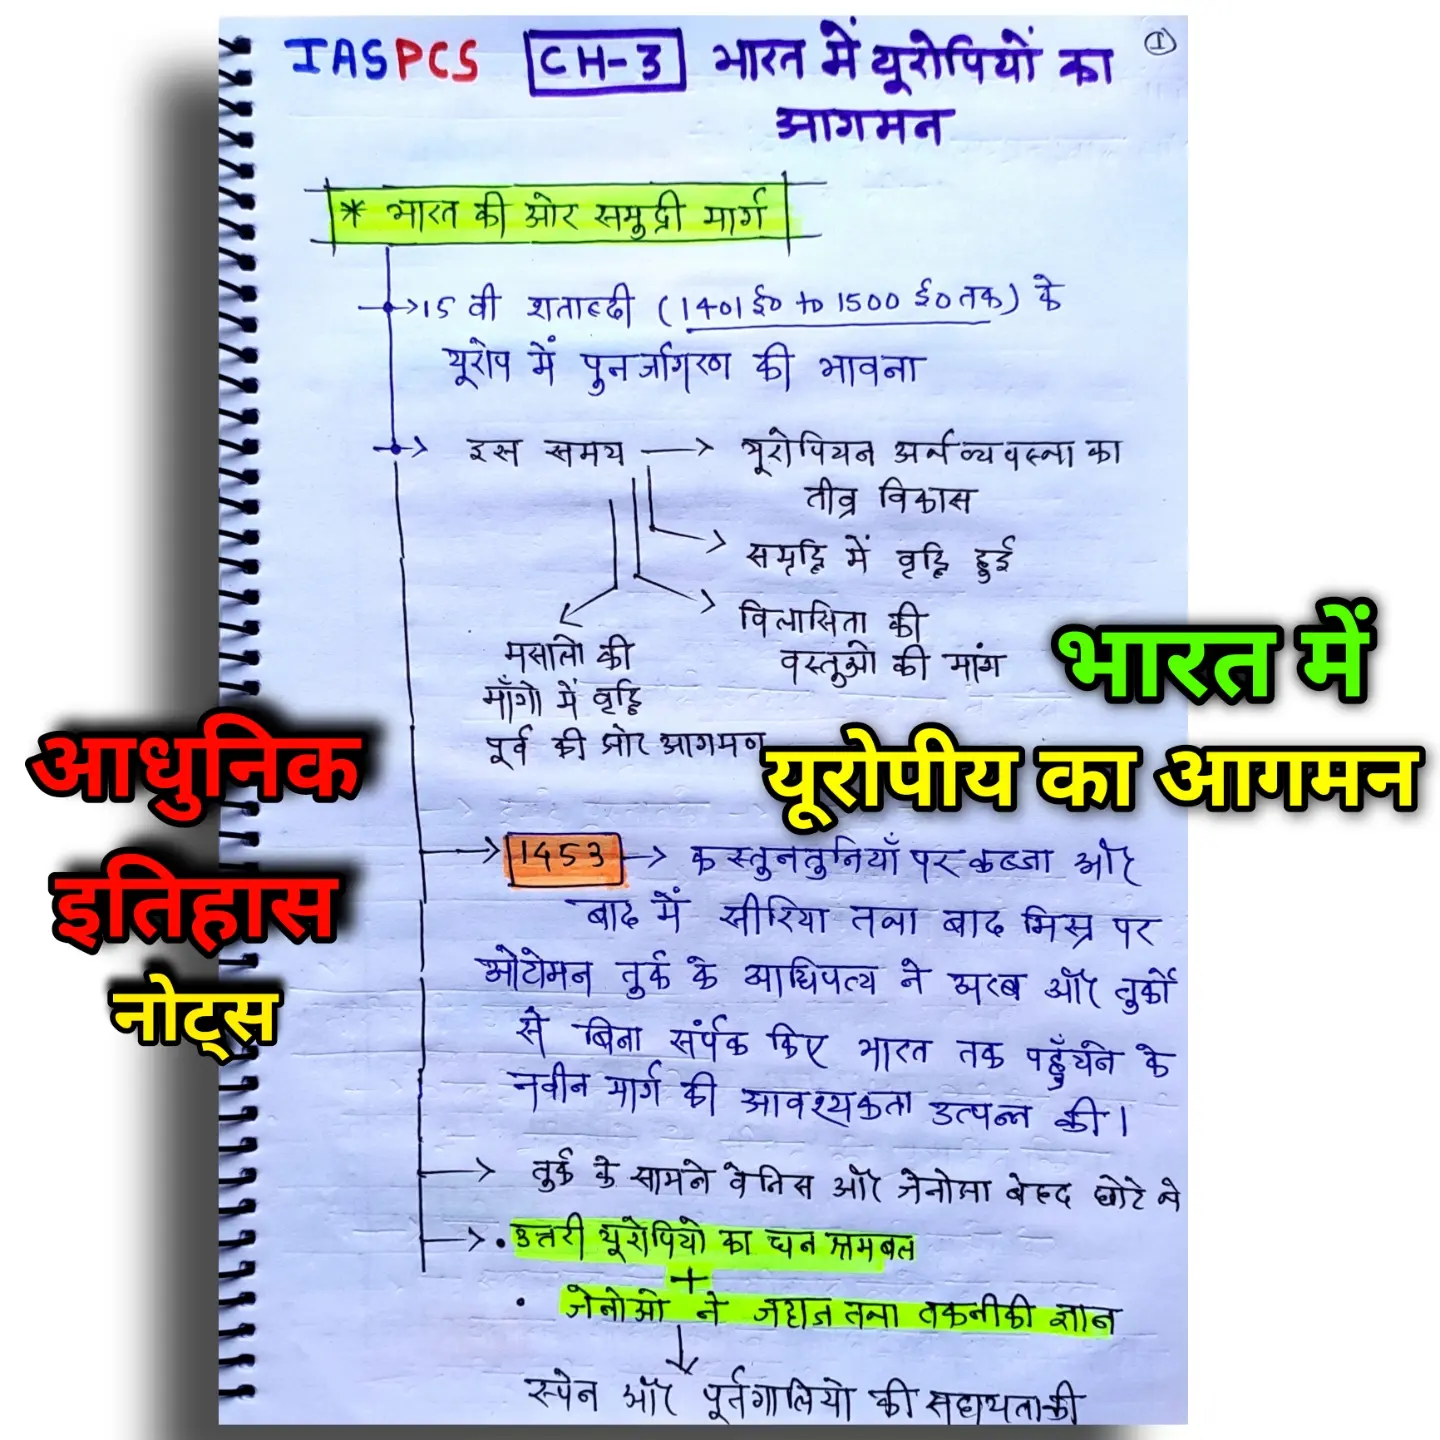 IASPCS CH-3 भारत में यूरोपियों का
आगमन
1
* भारत की ओर समुद्री मार्ग
→ 15 वी शताब्दी (1401 ई० to 1500 ई० तक) के
यूरोप में पुनर्जागरण की भावना
→ इस समय → यूरोपियन अर्थव्यवस्था का
तीव्र विकास
→ समृद्धि में वृद्धि हुई
→ विलासिता की
वस्तुओ की मांग
मसालो की
माँगो में वृद्धि
पूर्व की ओर आगमन
भारत में
यूरोपीय का आगमन
आधुनिक
इतिहास
नोट्स
→ 1453 → कस्तुनतुनियाँ पर कब्जा और
बाद में सीरिया तथा बाद मिस्र पर
ओटोमन तुर्क के आधिपत्य ने अरब और तुर्को
से बिना संर्पक किए भारत तक पहुँचने के
नवीन मार्ग की आवश्यकता उत्पन्न की।
→ तुर्क के सामने वेनिस और जेनोआ बेहद छोटे थे
→ • उत्तरी यूरोपियो का धन श्रमबल
+
• जेनोओ ने जहाज तथा तकनीकी ज्ञान
↓
स्पेन और पूर्तगालियो की सहायता की